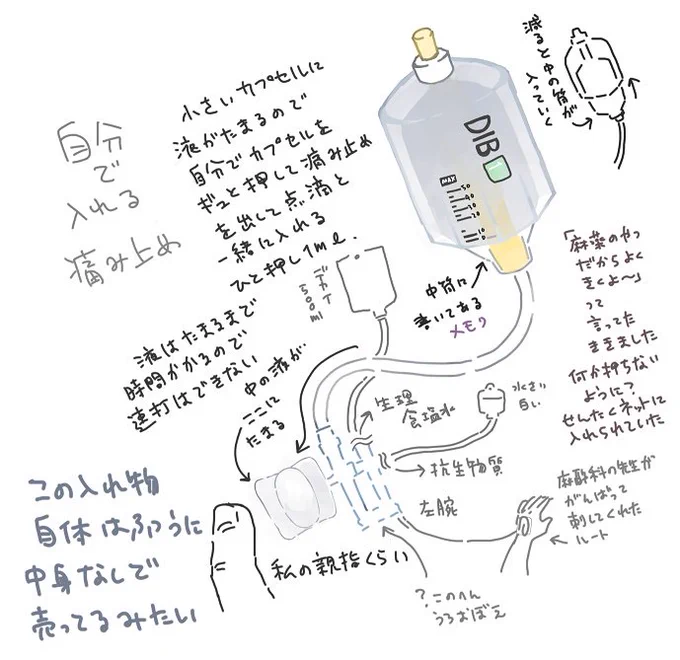 自分
で
入れる
痛み止め
小さいカプセルに
液がたまるので
自分でカプセルを
ギュと押して痛み止め
を出して点滴と
一緒に入れる
ひと押し1ml.
液はたまるまで
時間がかかるので
連打はできない
デカイ
500ml
DIB
MAX
50
40
30
20
10
減ると中の筒が
入っていく
中筒に
書いてある
メモリ
「麻薬のやつ
だからよく
きくよ〜」
って
言ってた
ききました
何か持ちない
ように?
せんたくネットに
入れられていた
中の液が
ここに
たまる
生理
食塩水
小さい
白い
抗生物質
左腕
麻酔科の先生が
がんばって
刺してくれた
ルート
私の親指くらい
?このへん
うろおぼえ
この入れ物
自体はふつうに
中身なしで
売ってるみたい